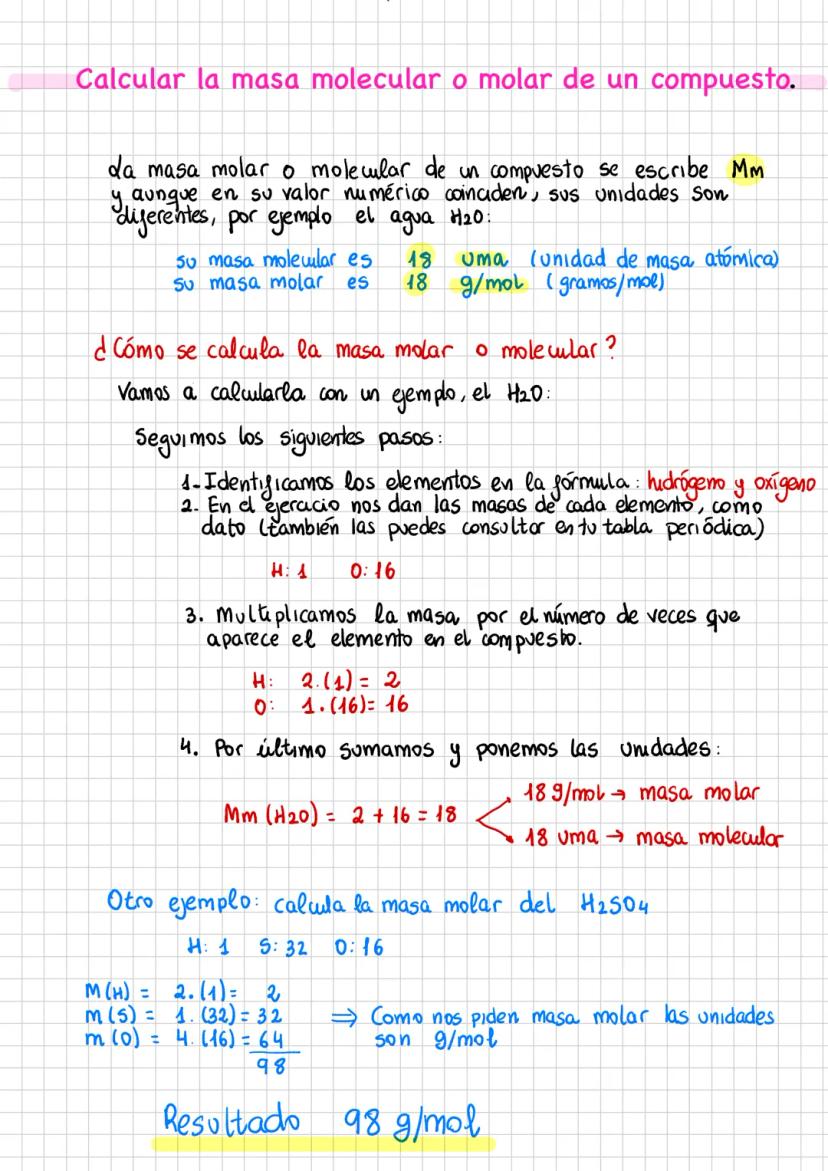 Calcular la masa molecular o molar de un compuesto.
La masa molar o molecular de un compuesto se escribe Mm
y aunque en su valor numérico coinciden, sus unidades son
diferentes, por ejemplo el agua H2O:
su masa molecular es 18 uma (unidad de masa atómica)
su masa molar es 18 g/mol (gramos/mol)
¿Cómo se calcula la masa molar o molecular?
Vamos a calcularla con un ejemplo, el H2O:
Seguimos los siguientes pasos:
1-Identificamos los elementos en la fórmula: hidrógeno y oxígeno
2. En el ejercicio nos dan las masas de cada elemento, como
dato (también las puedes consultar en tu tabla periódica)
H: 1 O: 16
3. Multiplicamos la masa por el número de veces que
aparece el elemento en el compuesto.
H: 2.(1) = 2
O: 1.(16)= 16
4. Por último sumamos y ponemos las unidades:
Mm (H2O) = 2 + 16 = 18
18 g/mol → masa molar
18 uma → masa molecular
Otro ejemplo: calcula la masa molar del H2SO4
H: 1 S: 32 O: 16
M(H) = 2.(1)= 2
m(S) = 1.(32)= 32 ⇒ Como nos piden masa molar las unidades
m(O) = 4.(16)= 64 son g/mol
98
Resultado 98 g/mol